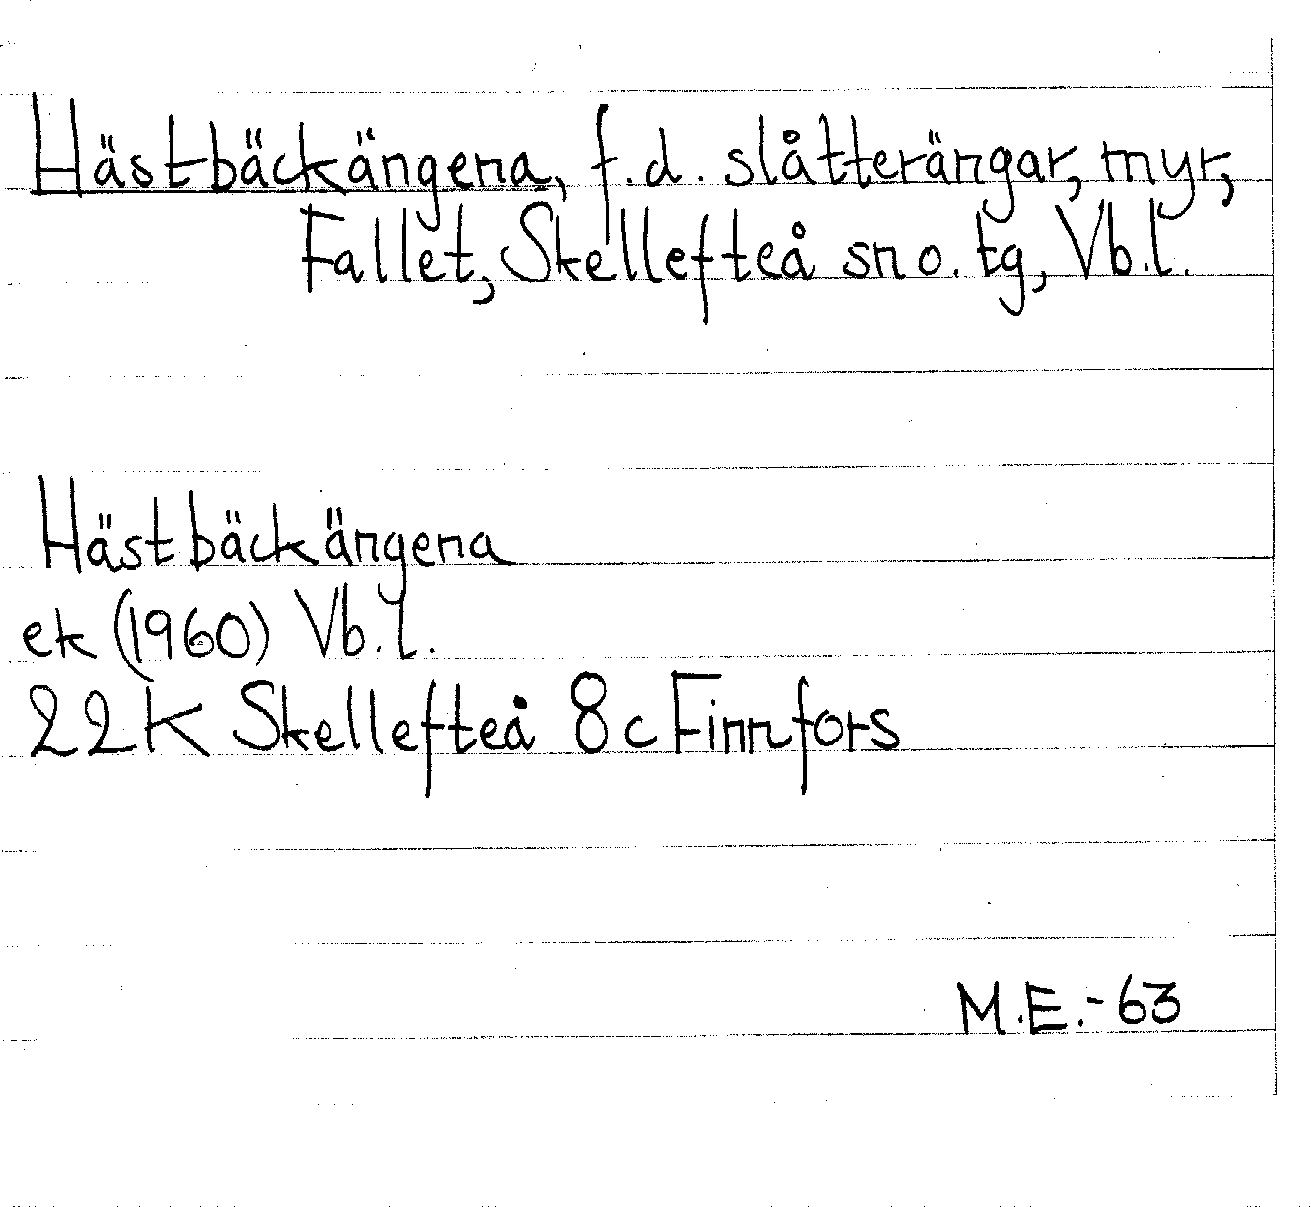 Hästbäckängena, f.d. slåtterängar, myr,
Fallet, Skellefteå sn o. tg, Vb.l.
Hästbäckängena
ek (1960) Vb.l.
22K Skellefteå 8c Finnfors
M.E.-63